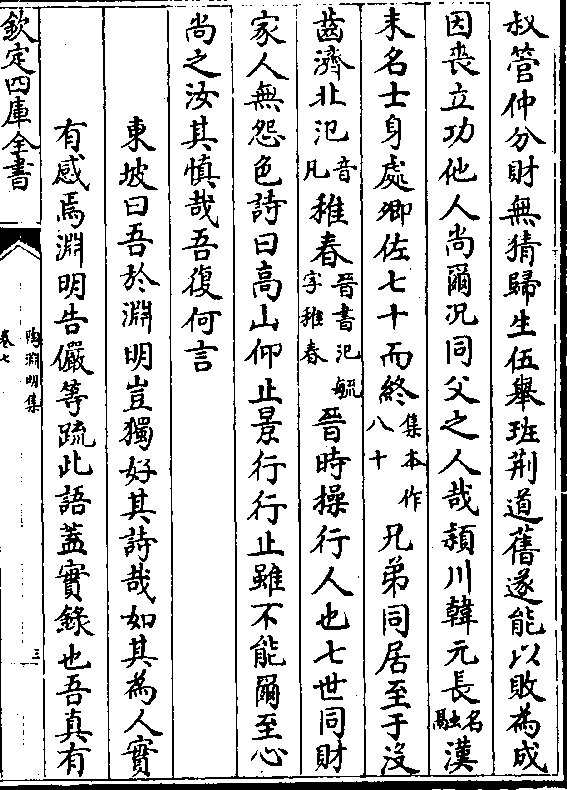 叔管仲分財無猜歸生伍舉班荆道舊遂能以敗為成
因喪立功他人尚爾况同父之人哉潁川韓元長名融漢
末名士身處卿佐七十而終集本作八十兄弟同居至于沒
齒濟北氾音凡稚春晉書氾毓字稚春晉時操行人也七世同財
家人無怨色詩曰高山仰止景行行止雖不能爾至心
尚之汝其慎哉吾復何言
東坡曰吾於淵明豈獨好其詩哉如其為人實
有感焉淵明告儼等䟽此語蓋實錄也吾真有
欽定四庫全書
陶淵明集
卷七
三